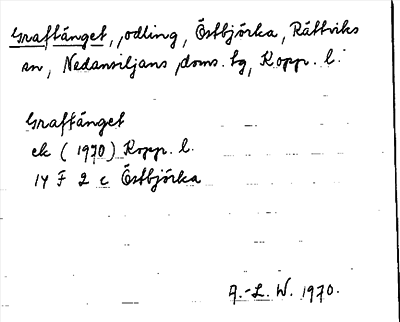 Graftänget, odling, Östbjörka, Rättviks
sn, Nedansiljans doms. tg, Kopp. l.
Graftänget
ek (1970) Kopp. l.
14 F 2 c Östbjörka
A.-L. W. 1970.